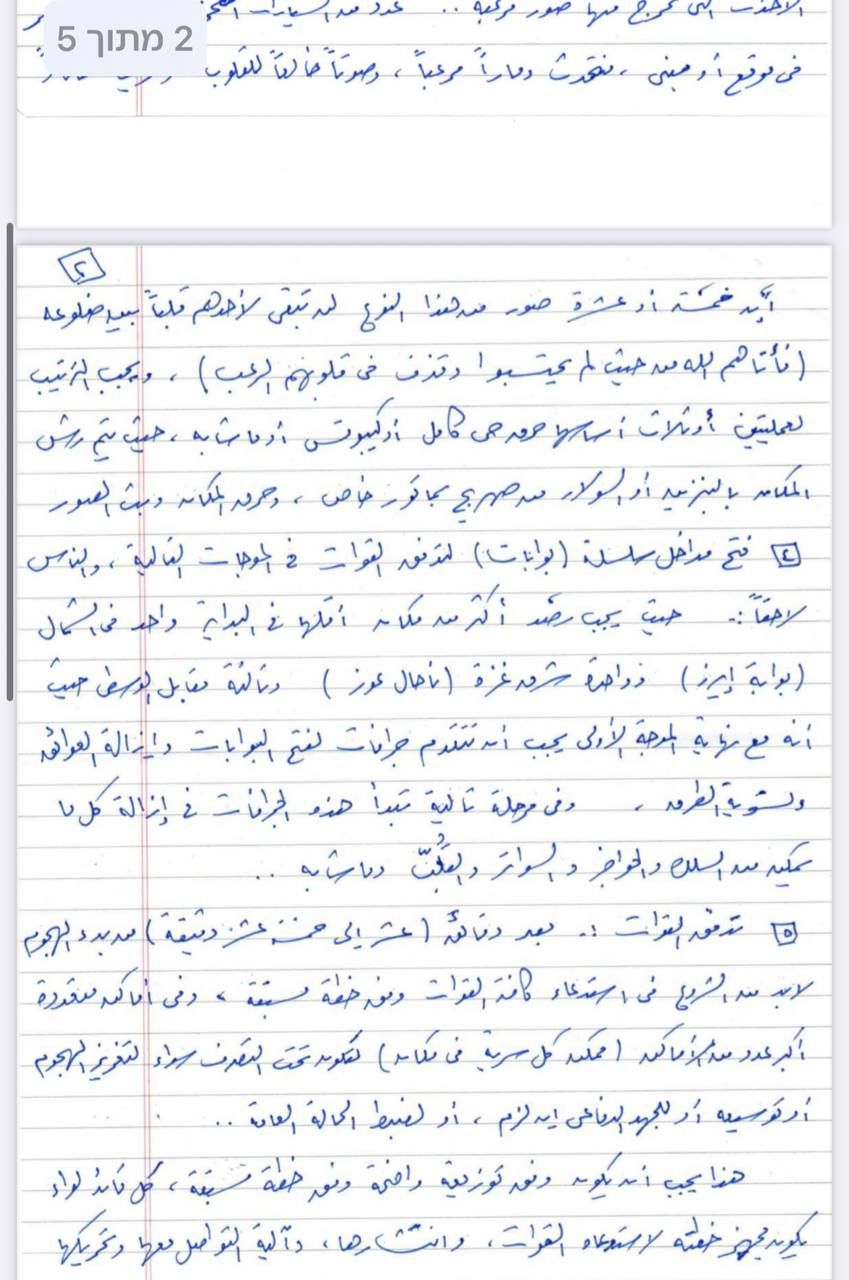 2 מתוך 5
منها صور مرعبة .. عدد من السيارات
فى موقع أو مبنى ، فتحدث دماراً مرعباً ، وصوتاً خالعاً للقلوب
٢
خمسة أو عشرة صور من هذا النوع لن تبقى لأحدهم قلباً بين ضلوعه
(فأتاهم الله من حيث لم يحتسبوا وقذف فى قلوبهم الرعب) ، ويجب الترتيب
لعمليتين أو ثلاث أساسها حرق حى كامل أو كيبوتس أو ما شابه ، حيث يتم رش
المكان بالبنزين أو السولار من صهريج خاص ، وحرق المكان وبث الصور
٤ فتح مداخل سلسلة (بوابات) لتدفق القوات فى الموجات التالية ، والناس
لاحقاً :. حيث يجب رصد أكثر من مكان أقلها فى البداية واحد فى الشمال
(بوابة إيرز) وواحدة شرق غزة (ناحال عوز) وثالثة مقابل الوسطى حيث
أنه مع نهاية الموجة الأولى يجب أن تتقدم جرافات لفتح البوابات وإزالة العوائق
وتسوية الطرق ، وفى مرحلة تالية تبدأ هذه الجرافات فى إزالة كل ما
يمكن من السلك والحواجز والسواتر وما شابه ..
٥ تدفق القوات :. بعد دقائق (عشر إلى خمسة عشر دقيقة) من بدء الهجوم
لابد من الشروع فى استدعاء كافة القوات وفق خطة مسبقة ، وفى أماكن معقودة
أكبر عدد من الأماكن (ممكن كل سرية فى مكان) لتكون تحت التصرف سواء لتعزيز الهجوم
أو توسيعه أو للجهد الدفاعى إن لزم ، أو لضبط الحالة العامة ..
هذا يجب أن يكون وفق توزيعة واضحة وفق خطة مسبقة ، كل قائد لواء
يكون مجهز خطته لاستدعاء القوات ، وانتشارها ، وآلية التواصل معها وتحريكها